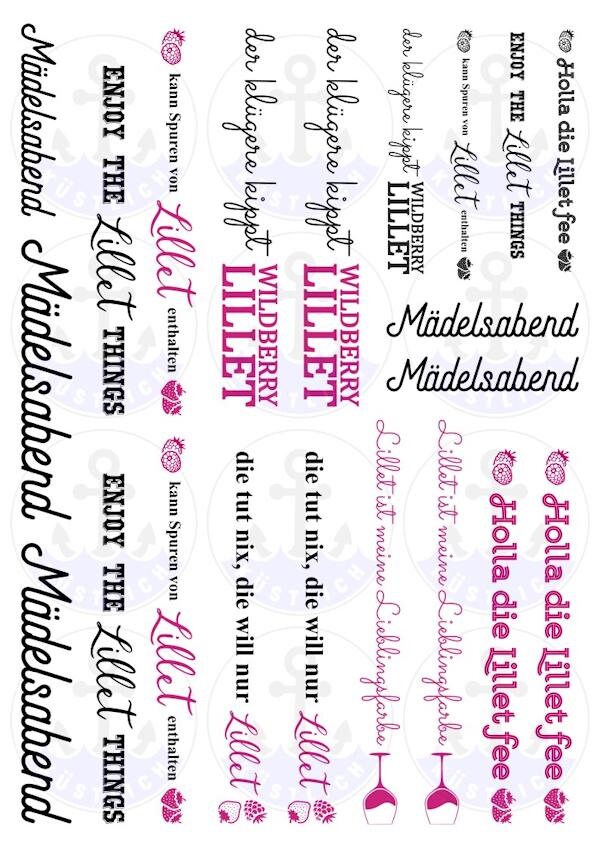 Mädelsabend
Mädelsabend
Mädelsabend
ENJOY THE Lillet THINGS
ENJOY THE Lillet THINGS
kann Spuren von Lillet enthalten
kann Spuren von Lillet enthalten
der klügere kippt
WILDBERRY
LILLET
der klügere kippt
WILDBERRY
LILLET
der klügere kippt
WILDBERRY
LILLET
kann Spuren von Lillet enthalten
ENJOY THE Lillet THINGS
Holla die Lillet fee
Mädelsabend
Mädelsabend
die tut nix, die will nur Lillet
die tut nix, die will nur Lillet
Lillet ist meine Lieblingsfarbe
Lillet ist meine Lieblingsfarbe
Holla die Lillet fee
Holla die Lillet fee
KÜSTLICH
KÜSTLICH
KÜSTLICH
KÜSTLICH
KÜSTLICH
KÜSTLICH
KÜSTLICH
KÜSTLICH
KÜSTLICH
KÜSTLICH
KÜSTLICH
KÜSTLICH